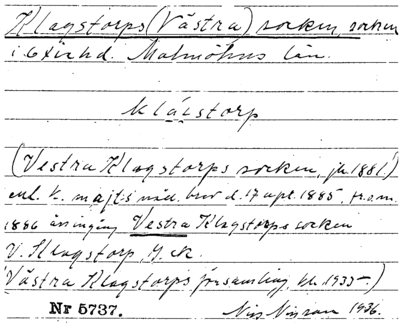 Klagstorps (Västra) socken, socken
i Oxie hd. Malmöhus län.
klástorp
(Vestra Klagstorps socken, jb. 1881)
enl. k. maj:ts nåd. brev d. 17 apl. 1885, fr.o.m.
1886 års ingång Vestra Klagstorps socken
V. Klagstorp, G. ck.
Västra Klagstorps församling, kk. 1933-)
Nr 5737. Nils Nilsson 1936.